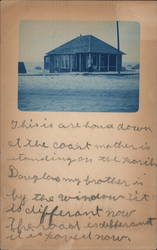 This is are house down
at the coast mother is
standing on the porch
Douglas my brother is
by the window it
is differant now
the road is differant
it is paved now.